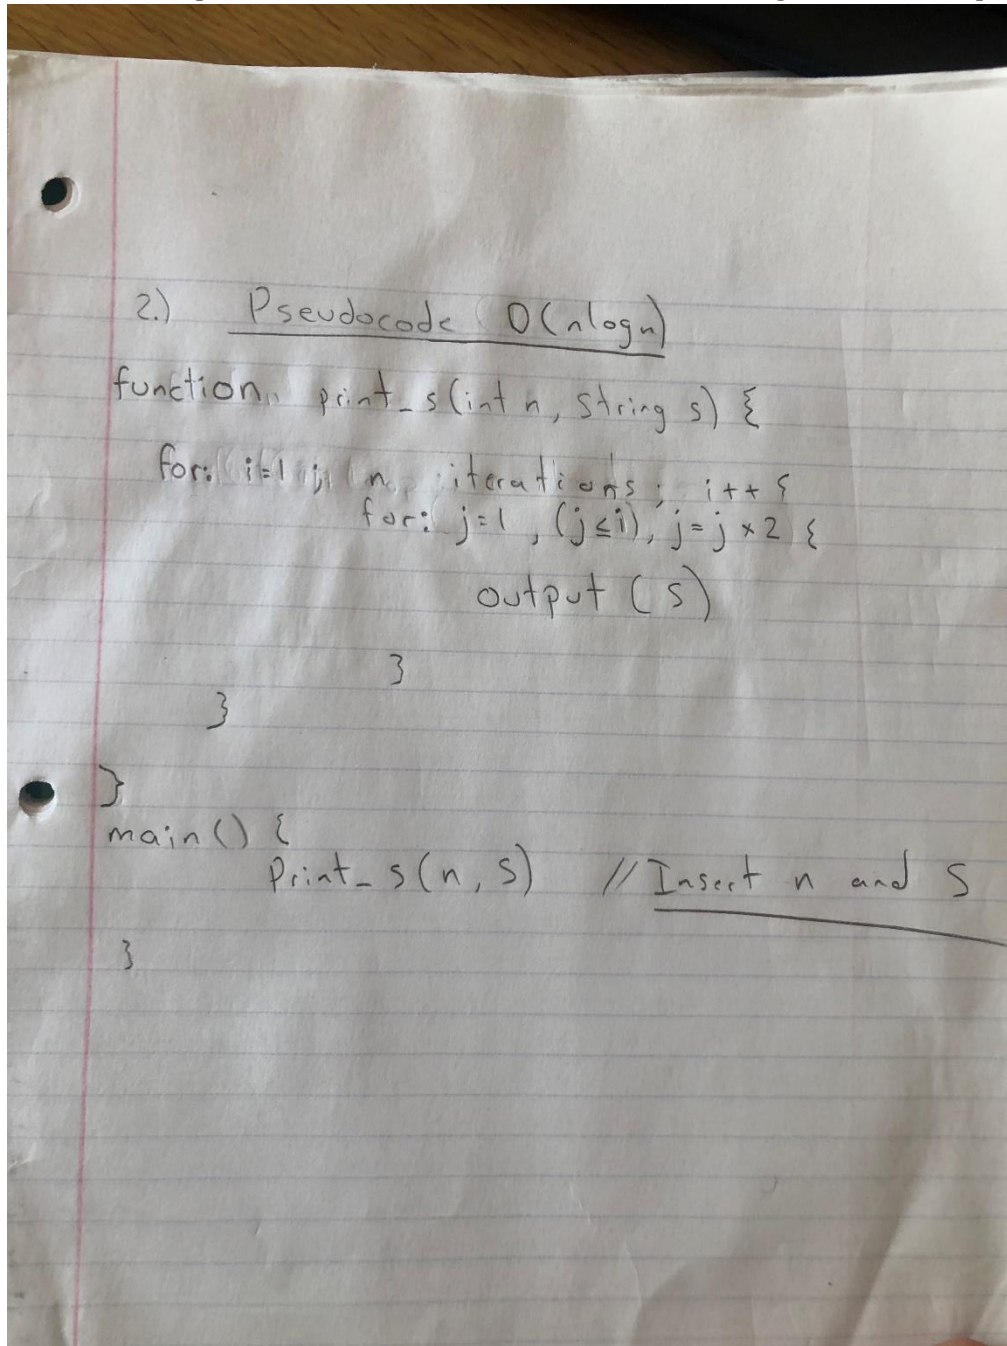 2.) Pseudocode O(nlogn)
function print_s(int n, String s) {
for: i=1 ; n iterations ; i++ {
for: j=1 , (j≤i), j=j×2 {
output (s)
}
}
}
main() {
Print_s(n, s) // Insert n and S
}